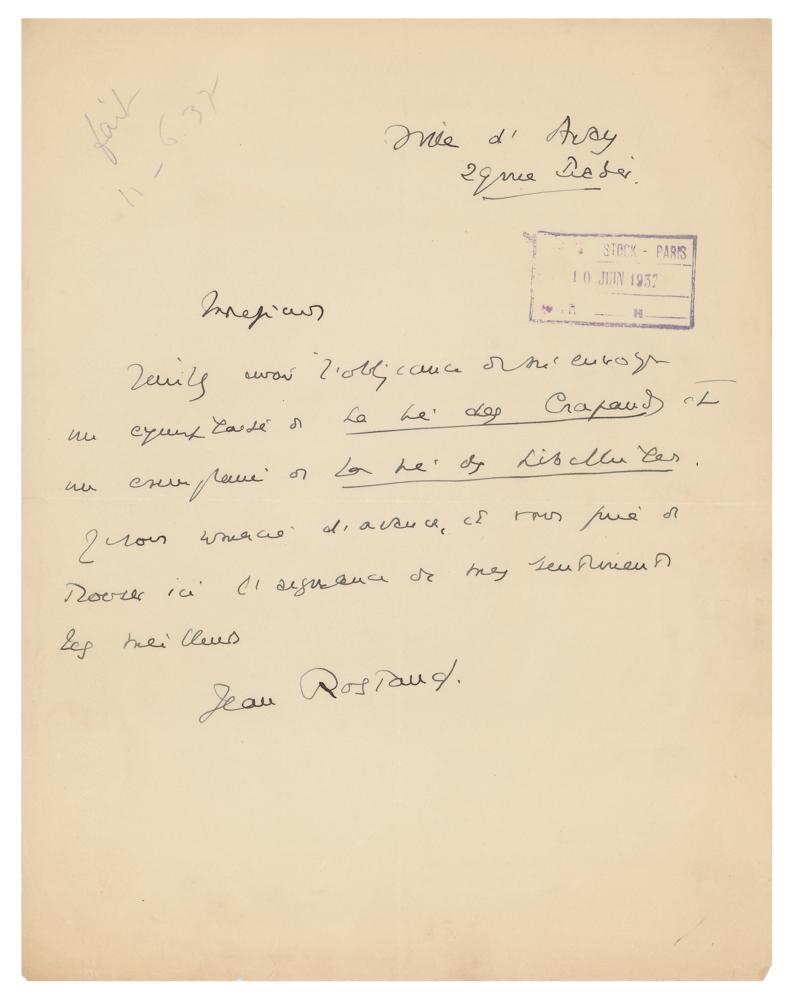 fait
11 - 6. 37
Ville d' Avray
29 rue Pradier.
STOCK - PARIS
10 JUIN 1937
Messieurs
Veuillez avoir l'obligeance de m'envoyer
un exemplaire de La Vie des Crapauds et
un exemplaire de La Vie des Libellules.
Je vous remercie d'avance, et vous prie de
trouver ici l'assurance de mes sentiments
les meilleurs
Jean Rostand.